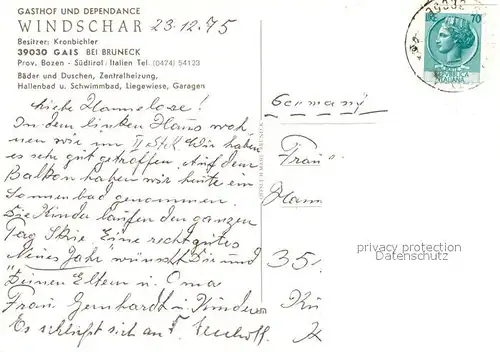 GASTHOF UND DEPENDANCE
WINDSCHAR 23.12.75
Besitzer: Kronbichler
39030 GAIS BEI BRUNECK
Prov. Bozen - Südtirol / Italien Tel. (0474) 54123
Bäder und Duschen, Zentralheizung,
Hallenbad u. Schwimmbad, Liegewiese, Garagen
Liebe Hannelose!
In dem linken Haus woh
nen wir im II Stck Wir haben
es sehr gut getroffen. Auf dem
Balkon haben wir heute ein
Sonnenbad genommen.
Die Kinder laufen den ganzen
Tag Skie. Eine recht gutes
Neues Jahr wünscht Dir und
Deinen Eltern u. Oma
Frau Gernhardt u. Kinder
Es schließt sich an
39032
LIRE 70
REPUBBLICA
ITALIANA
Germany
Frau
Hann
35
privacy protection
Datenschutz